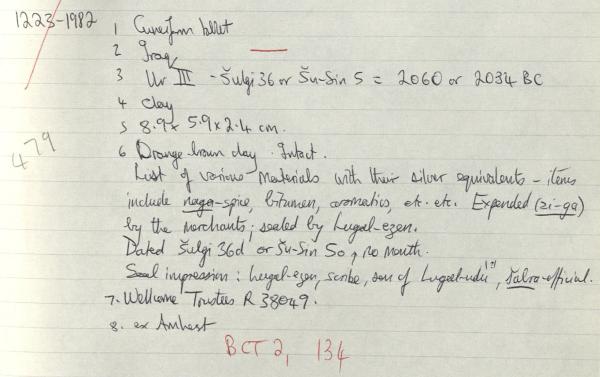 1223-1982
1 Cuneiform tablet
2 Iraq
3 Ur III - Šulgi 36 or Šu-Sin 5 = 2060 or 2034 BC
4 Clay
5 8.9 x 5.9 x 2.4 cm.
479
6 Orange-brown clay. Intact.
List of various materials with their silver equivalents - items
include naga-spice, bitumen, aromatics, etc. etc. Expended (zi-ga)
by the merchants; sealed by Lugal-ezen.
Dated Šulgi 36d or Šu-Sin 5o, no month.
Seal impression: Lugal-ezen, scribe, son of šabra-official.
7. Wellcome Trustees R 38049.
8. ex Amherst
BCT 2, 134